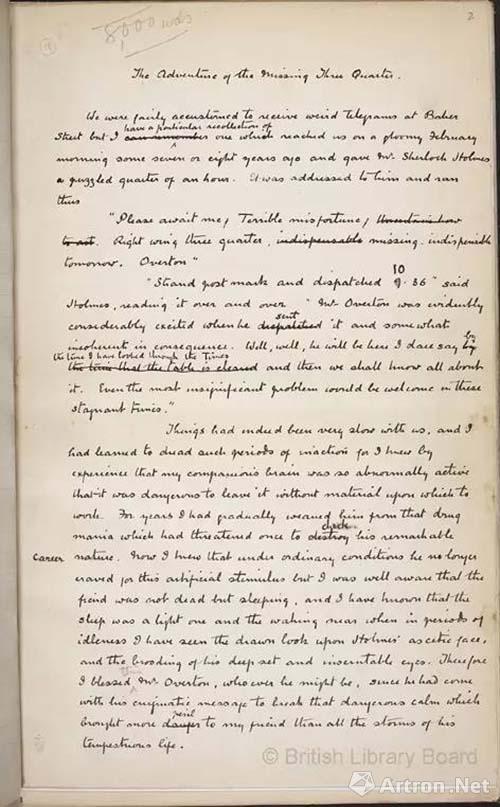 2
8,000 wds
The Adventure of the Missing Three Quarter.
We were fairly accustomed to receive weird telegrams at Baker
have a particular recollection of
Street but I can remember one which reached us on a gloomy February
morning some seven or eight years ago and gave Mr. Sherlock Holmes
a puzzled quarter of an hour. It was addressed to him and ran
thus
"Please await me, Terrible misfortune, Uncertain how
to act. Right wing three quarter, indispensable missing. indispensible
tomorrow. Overton"
10
"Strand post mark and dispatched 9.36" said
Holmes, reading it over and over. "Mr Overton was evidently
sent
considerably excited when he dispatched it and somewhat
incoherent in consequence. Well, well, he will be here I dare say by
the time I have looked through the Times
the time that the table is cleared and then we shall know all about
it. Even the most insignificant problem would be welcome in these
stagnant times."
Things had indeed been very slow with us, and I
had learned to dead such periods of inaction for I knew by
experience that my companion's brain was so abnormally active
that it was dangerous to leave it without material upon which to
work. For years I had gradually weaned him from that drug
check
mania which had threatened once to destroy his remarkable
career
nature. Now I knew that under ordinary conditions he no longer
craved for this artificial stimulus but I was well aware that the
fiend was not dead but sleeping, and I have known that the
sleep was a light one and the waking near when in periods of
idleness I have seen the drawn look upon Holmes' ascetic face,
and the brooding of his deep set and inscrutable eyes. Therefore
this
I blessed Mr. Overton, who ever he might be, since he had come
with his enigmatic message to break that dangerous calm which
peril
brought more danger to my friend than all the storms of his
tempestuous life.
© British Library Board
Artron.Net